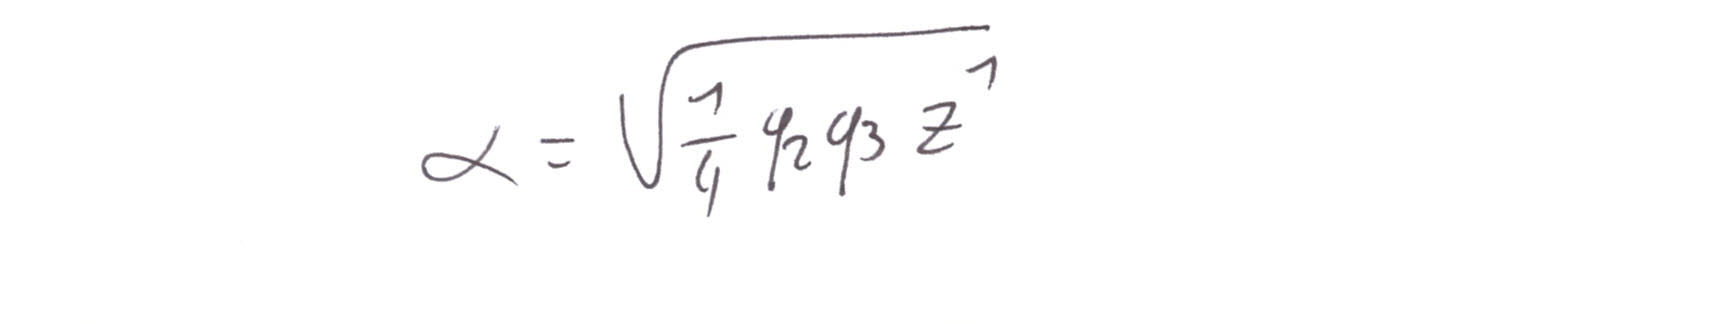 α = √(1/4 q₂ q₃ z¹)